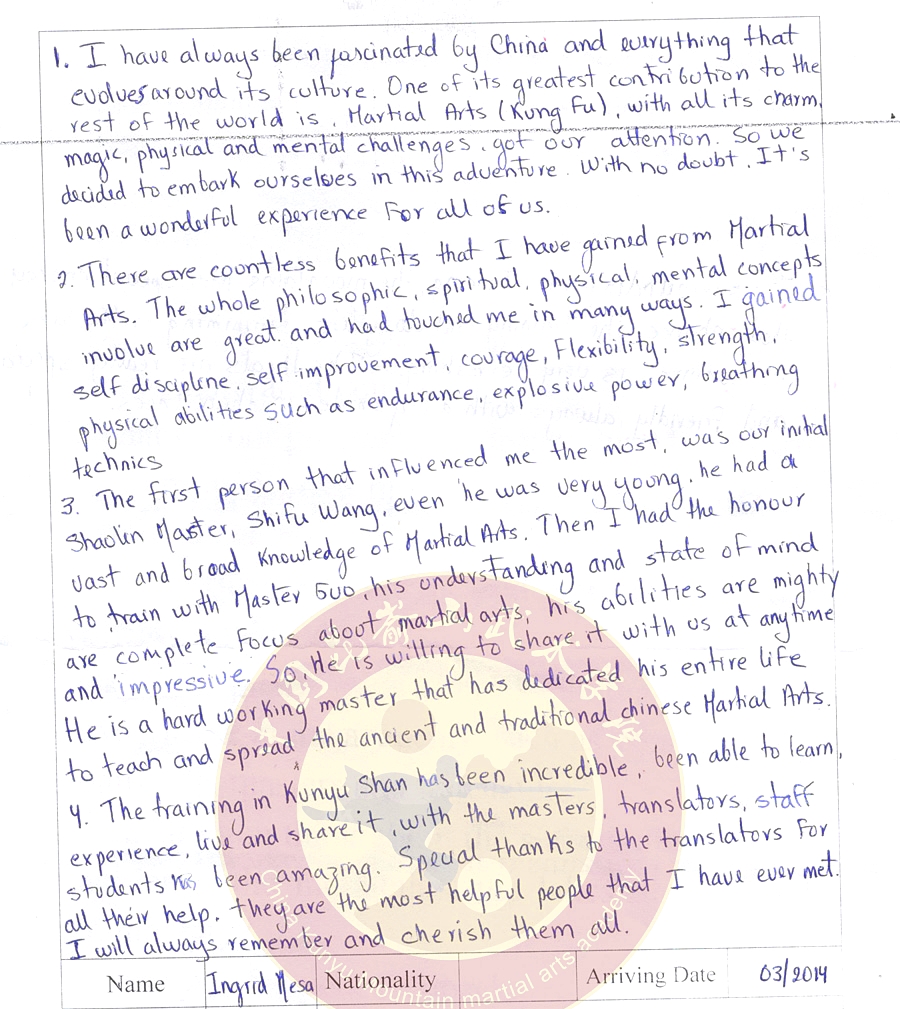 1. I have always been fascinated by China and everything that
evolves around its culture. One of its greatest contribution to the
rest of the world is, Martial Arts (Kung Fu), with all its charm,
magic, physical and mental challenges, got our attention. So we
decided to embark ourselves in this adventure. With no doubt, It's
been a wonderful experience For all of us.
2. There are countless benefits that I have gained from Martial
Arts. The whole philosophic, spiritual, physical, mental concepts
involve are great and had touched me in many ways. I gained
self discipline, self improvement, courage, Flexibility, strength,
physical abilities such as endurance, explosive power, breathing
technics
3. The first person that influenced me the most, was our initial
Shaolin Master, Shifu Wang, even he was very young, he had a
vast and broad Knowledge of Martial Arts. Then I had the honour
to train with Master Guo, his understanding and state of mind
are complete Focus about martial arts, his abilities are mighty
and impressive. So, He is willing to share it with us at anytime
He is a hard working master that has dedicated his entire life
to teach and spread the ancient and traditional chinese Martial Arts.
4. The training in Kunyu Shan has been incredible, been able to learn,
experience, live and share it, with the masters, translators, staff
students has been amazing. Special thanks to the translators For
all their help, they are the most helpful people that I have ever met.
I will always remember and cherish them all.
Name Ingrid Mesa Nationality Arriving Date 03/2014
China Kunyu mountain martial arts academy